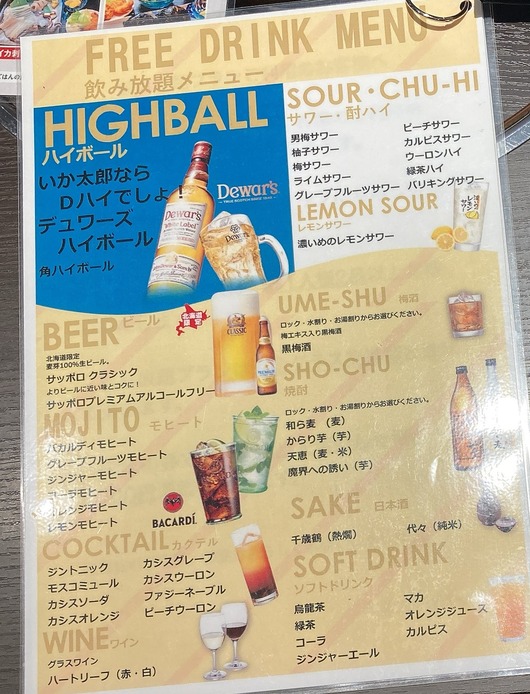 FREE DRINK MENU
飲み放題メニュー
HIGHBALL
ハイボール
いか太郎なら
Dハイでしょ!
デュワーズ
ハイボール
角ハイボール
Dewar's
Dewar's
White Label
SOUR・CHU-HI
サワー・酎ハイ
男梅サワー
柚子サワー
梅サワー
ライムサワー
グレープフルーツサワー
ピーチサワー
カルピスサワー
ウーロンハイ
緑茶ハイ
バリキングサワー
LEMON SOUR
レモンサワー
濃いめのレモンサワー
BEER ビール
北海道限定
北海道限定
麦芽100%生ビール。
サッポロ クラシック
よりビールに近い味とコクに!
サッポロプレミアムアルコールフリー
CLASSIC
UME-SHU 梅酒
ロック・水割り・お湯割りからお選びください。
梅エキス入り黒梅酒
黒梅酒
SHO-CHU
焼酎
ロック・水割り・お湯割りからお選びください。
和ら麦 (麦)
からり芋 (芋)
天恵 (麦・米)
魔界への誘い (芋)
MOJITO モヒート
バカルディモヒート
グレープフルーツモヒート
ジンジャーモヒート
コーラモヒート
オレンジモヒート
レモンモヒート
BACARDÍ.
SAKE 日本酒
千歳鶴 (熱燗)
代々 (純米)
COCKTAIL カクテル
ジントニック
モスコミュール
カシスソーダ
カシスオレンジ
カシスグレープ
カシスウーロン
ファジーネーブル
ピーチウーロン
SOFT DRINK
ソフトドリンク
烏龍茶
緑茶
コーラ
ジンジャーエール
マカ
オレンジジュース
カルピス
WINE ワイン
グラスワイン
ハートリーフ (赤・白)